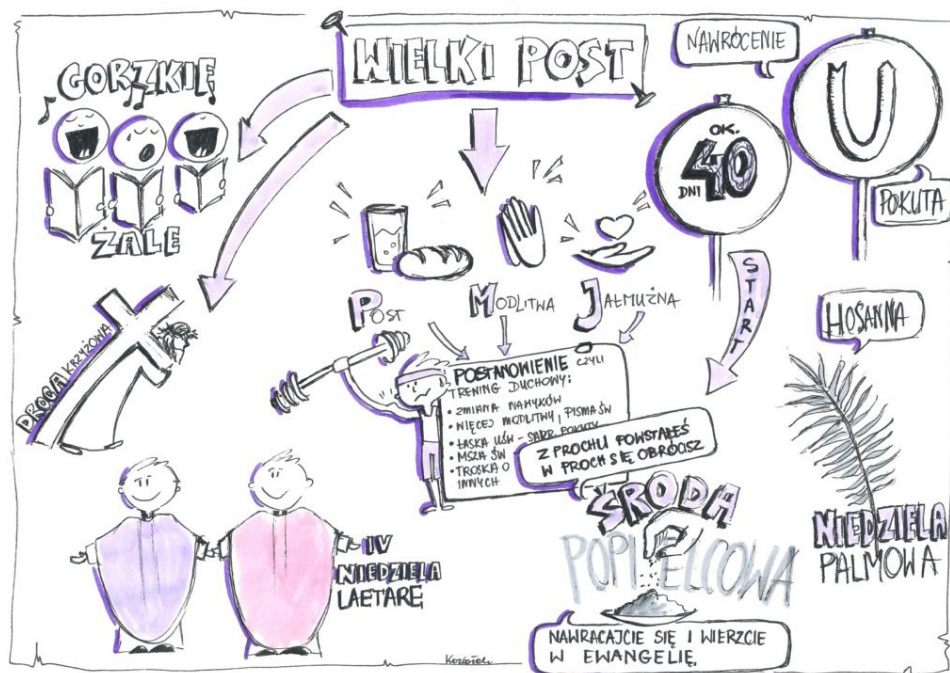 WIELKI POST
GORZKIE
ŻALE
NAWRÓCENIE
U
POKUTA
OK.
40
DNI
START
POST
MODLITWA
JAŁMUŻNA
DROGA KRZYŻOWA
POSTANOWIENIE CZYLI
TRENING DUCHOWY:
• ZMIANA NAWYKÓW
• WIĘCEJ MODLITWY, PISMA ŚW
• ŁASKA UŚW - SAKR. POKUTY
• MSZA ŚW
• TROSKA O
INNYCH
Z PROCHU POWSTAŁEŚ
W PROCH SIĘ OBRÓCISZ
ŚRODA
POPIELCOWA
NAWRACAJCIE SIĘ I WIERZCIE
W EWANGELIĘ.
HOSANNA
NIEDZIELA
PALMOWA
IV
NIEDZIELA
LAETARE